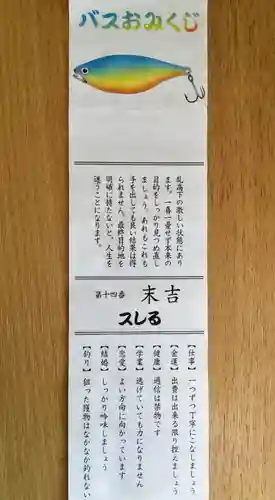 バスおみくじ
乱高下の激しい状態にあり
ます。一喜一憂せず本来の
目的をしっかり見つめ直し
ましょう。あれもこれも
手を出しても良い結果は得
られません。最終目的地を
明確に持たないと、人生を
迷うことになります。
第十四番
末吉
スしる
【仕事】一つずつ丁寧にこなしましょう
【金運】出費は出来る限り控えましょう
【健康】過信は禁物です
【学業】逃げていても力になりません
【恋愛】よい方向に向かっています
【結婚】しっかり吟味しましょう
【釣り】狙った獲物はなかなか釣れない